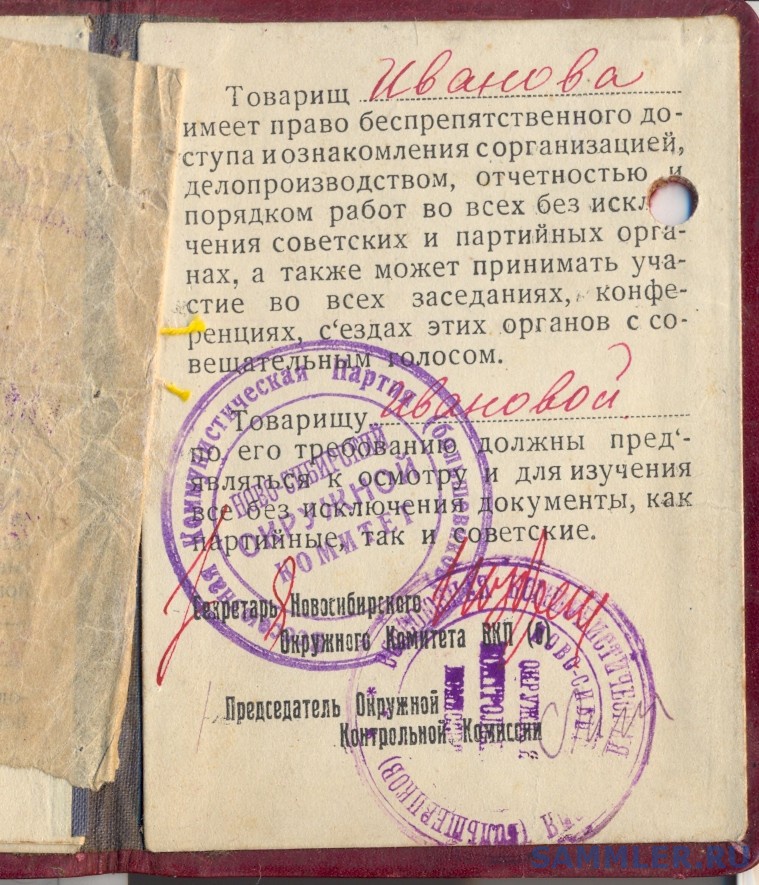 Товарищ Иванова
имеет право беспрепятственного до-
ступа и ознакомления с организацией,
делопроизводством, отчетностью и
порядком работ во всех без исклю-
чения советских и партийных орга-
нах, а также может принимать уча-
стие во всех заседаниях, конфе-
ренциях, с‘ездах этих органов с со-
вещательным голосом.
Товарищу Ивановой
по его требованию должны пред‘-
являться к осмотру и для изучения
все без исключения документы, как
партийные, так и советские.
Коммунистическая Партия (большевиков)
НОВО-СИБИРСКИЙ
ОКРУЖНОЙ
КОМИТЕТ
Секретарь Новосибирского
Окружного Комитета ВКП (б)
Председатель Окружной
Контрольной Комиссии
КОММУНИСТИЧЕСКАЯ
(БОЛЬШЕВИКОВ)
SAMMLER.RU